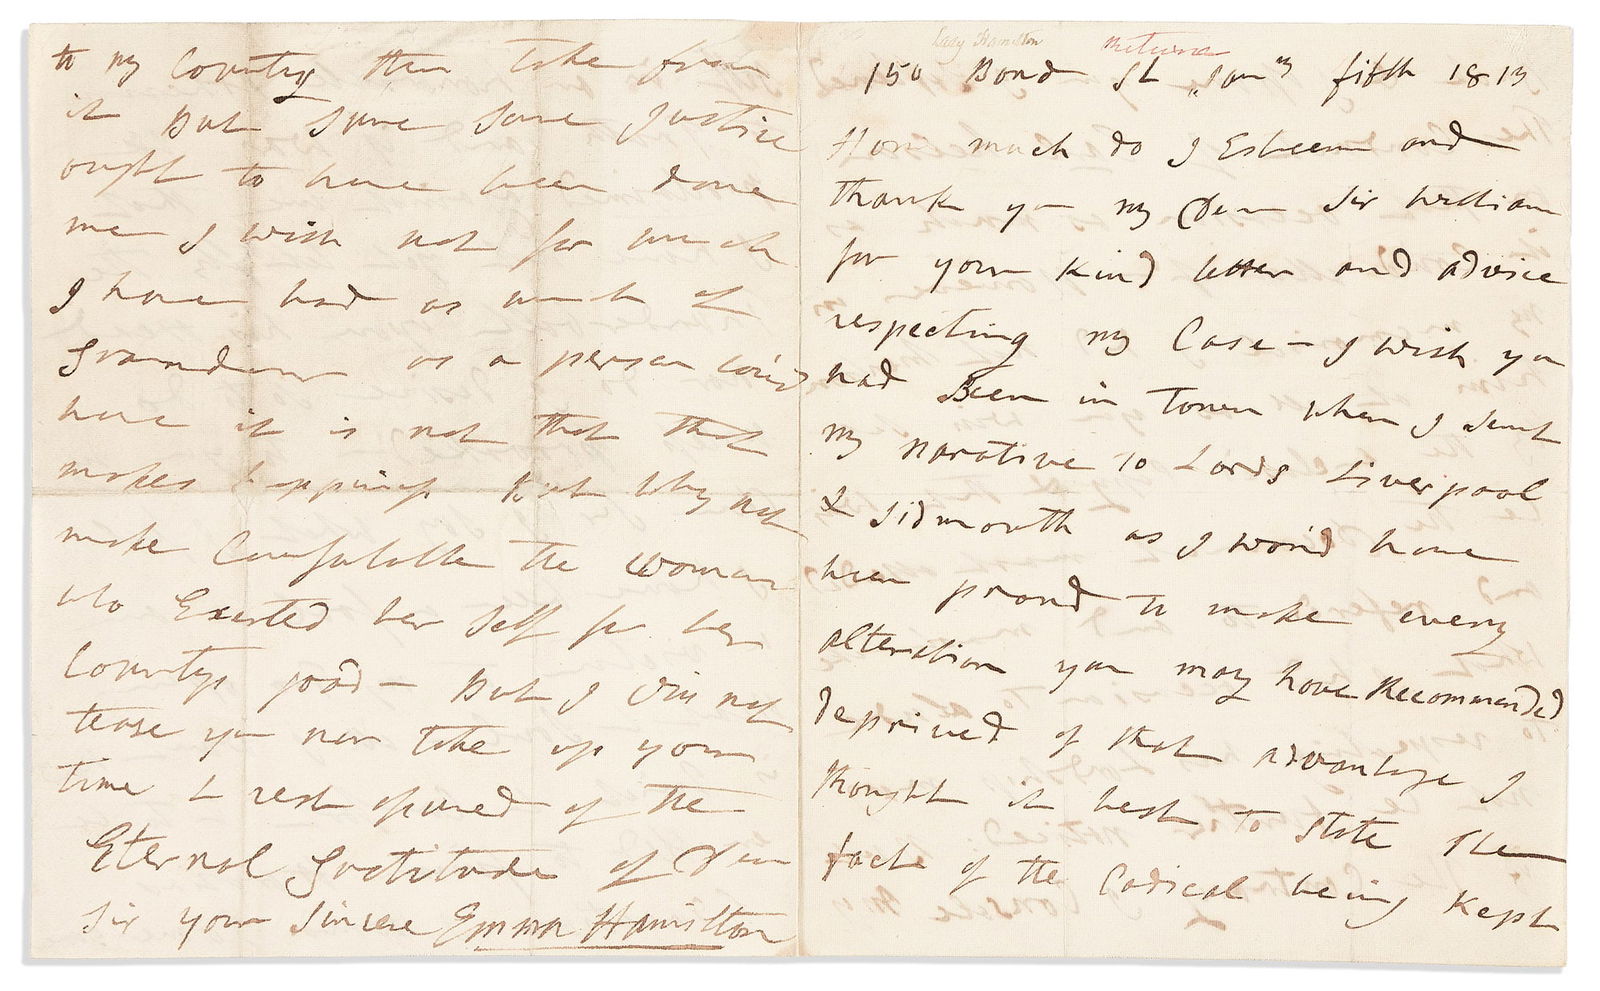 Lady Hamilton returned
150 Bond St Jany fifth 1813
How much do I Esteem and
thank you my Dear Sir William
for your Kind letter and advice
respecting my Case - I wish you
had Been in Town when I sent
my narative to Lords Liverpool
& Sidmouth as I wou'd have
been proud to make every
alteration you may have Recommended
deprived of that advantage I
thought it best to State the
fact of the Codical being Kept
to my Country then take from
it But sure some Justice
ought to have been done
me I wish not for much
I have had as much of
Grandeur as a person cou'd
have it is not that that
makes happiness But why not
make Comfortable the woman
who Exerted her self for her
Countys good - But I will not
tease you nor take up your
time & rest assured of the
Eternal Gratitude of Dear
Sir your Sincere Emma Hamilton